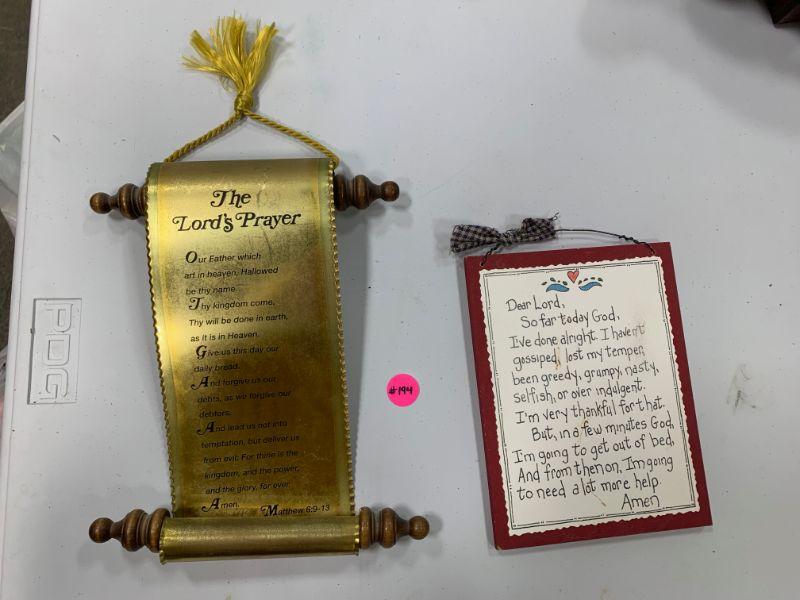 The
Lord's Prayer
Our Father which
art in heaven, Hallowed
be thy name.
Thy kingdom come,
Thy will be done in earth,
as It is in Heaven.
Give us this day our
daily bread.
And forgive us our
debts, as we forgive our
debtors.
And lead us not into
temptation, but deliver us
from evil: For thine is the
kingdom, and the power,
and the glory, for ever
Amen.
Matthew 6:9-13
PDG
#194
Dear Lord,
So far today God,
I've done alright. I haven't
gossiped, lost my temper,
been greedy, grumpy, nasty,
selfish, or over indulgent.
I'm very thankful for that.
But, in a few minutes God,
I'm going to get out of bed,
And from then on, I'm going
to need a lot more help.
Amen